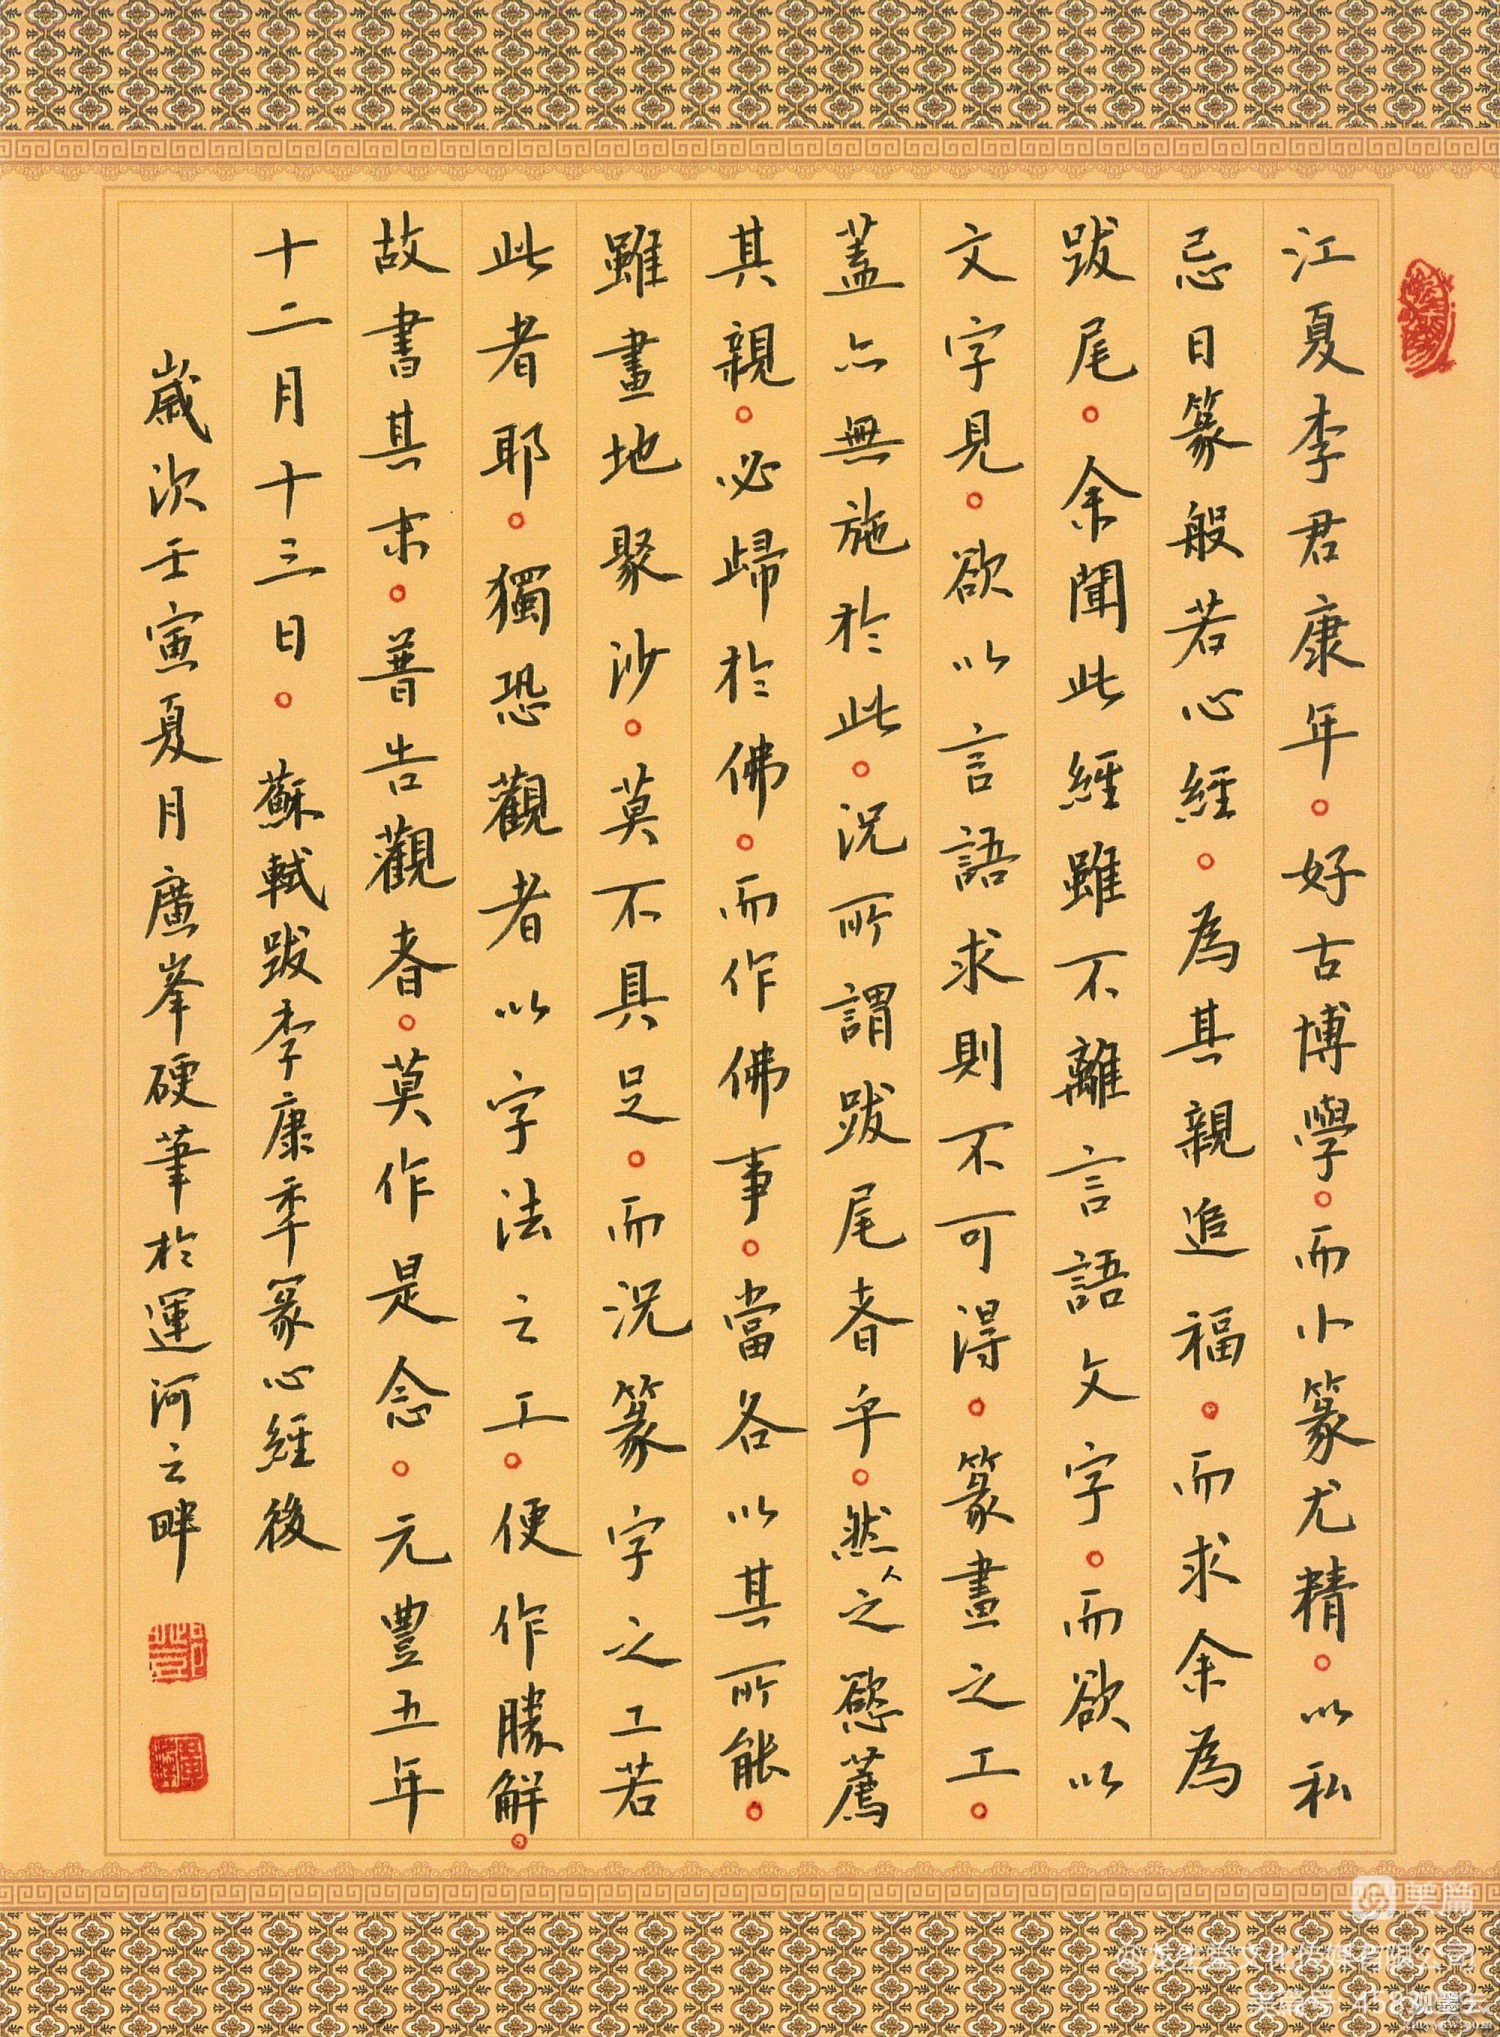 江夏李君康年。好古博學。而小篆尤精。以私
忌日篆般若心經。為其親追福。而求余為
跋尾。余聞此經雖不離言語文字。而欲以
文字見。欲以言語求則不可得。篆畫之工。
蓋亦無施於此。況所謂跋尾者乎。然人之慾薦
其親。必歸於佛。而作佛事。當各以其所能。
雖畫地聚沙。莫不具足。而況篆字之工若
此者耶。獨恐觀者以字法之工。便作勝解。
故書其末。普告觀者。莫作是念。元豐五年
十二月十三日。蘇軾跋李康年篆心經後
歲次壬寅夏月廣峯硬筆於運河之畔
美篇